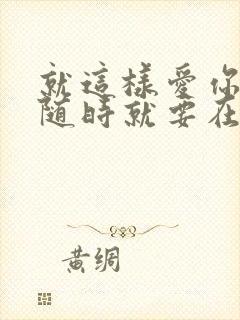 就這樣愛你
随時就要在
黃綢